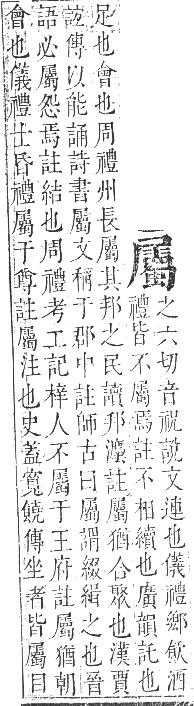 屬
之六切音祝說文連也儀禮鄉飲酒
禮皆不屬焉註不相續也廣韻託也
足也會也周禮州長屬其邦之民讀邦灋註屬猶合聚也漢賈
誼傳以能誦詩書屬文稱于郡中註師古曰屬謂綴緝之也晉
語必屬怨焉註結也周禮考工記梓人不屬于王府註屬猶朝
會也儀禮士昏禮屬于尊註屬注也史蓋寬饒傳坐者皆屬目